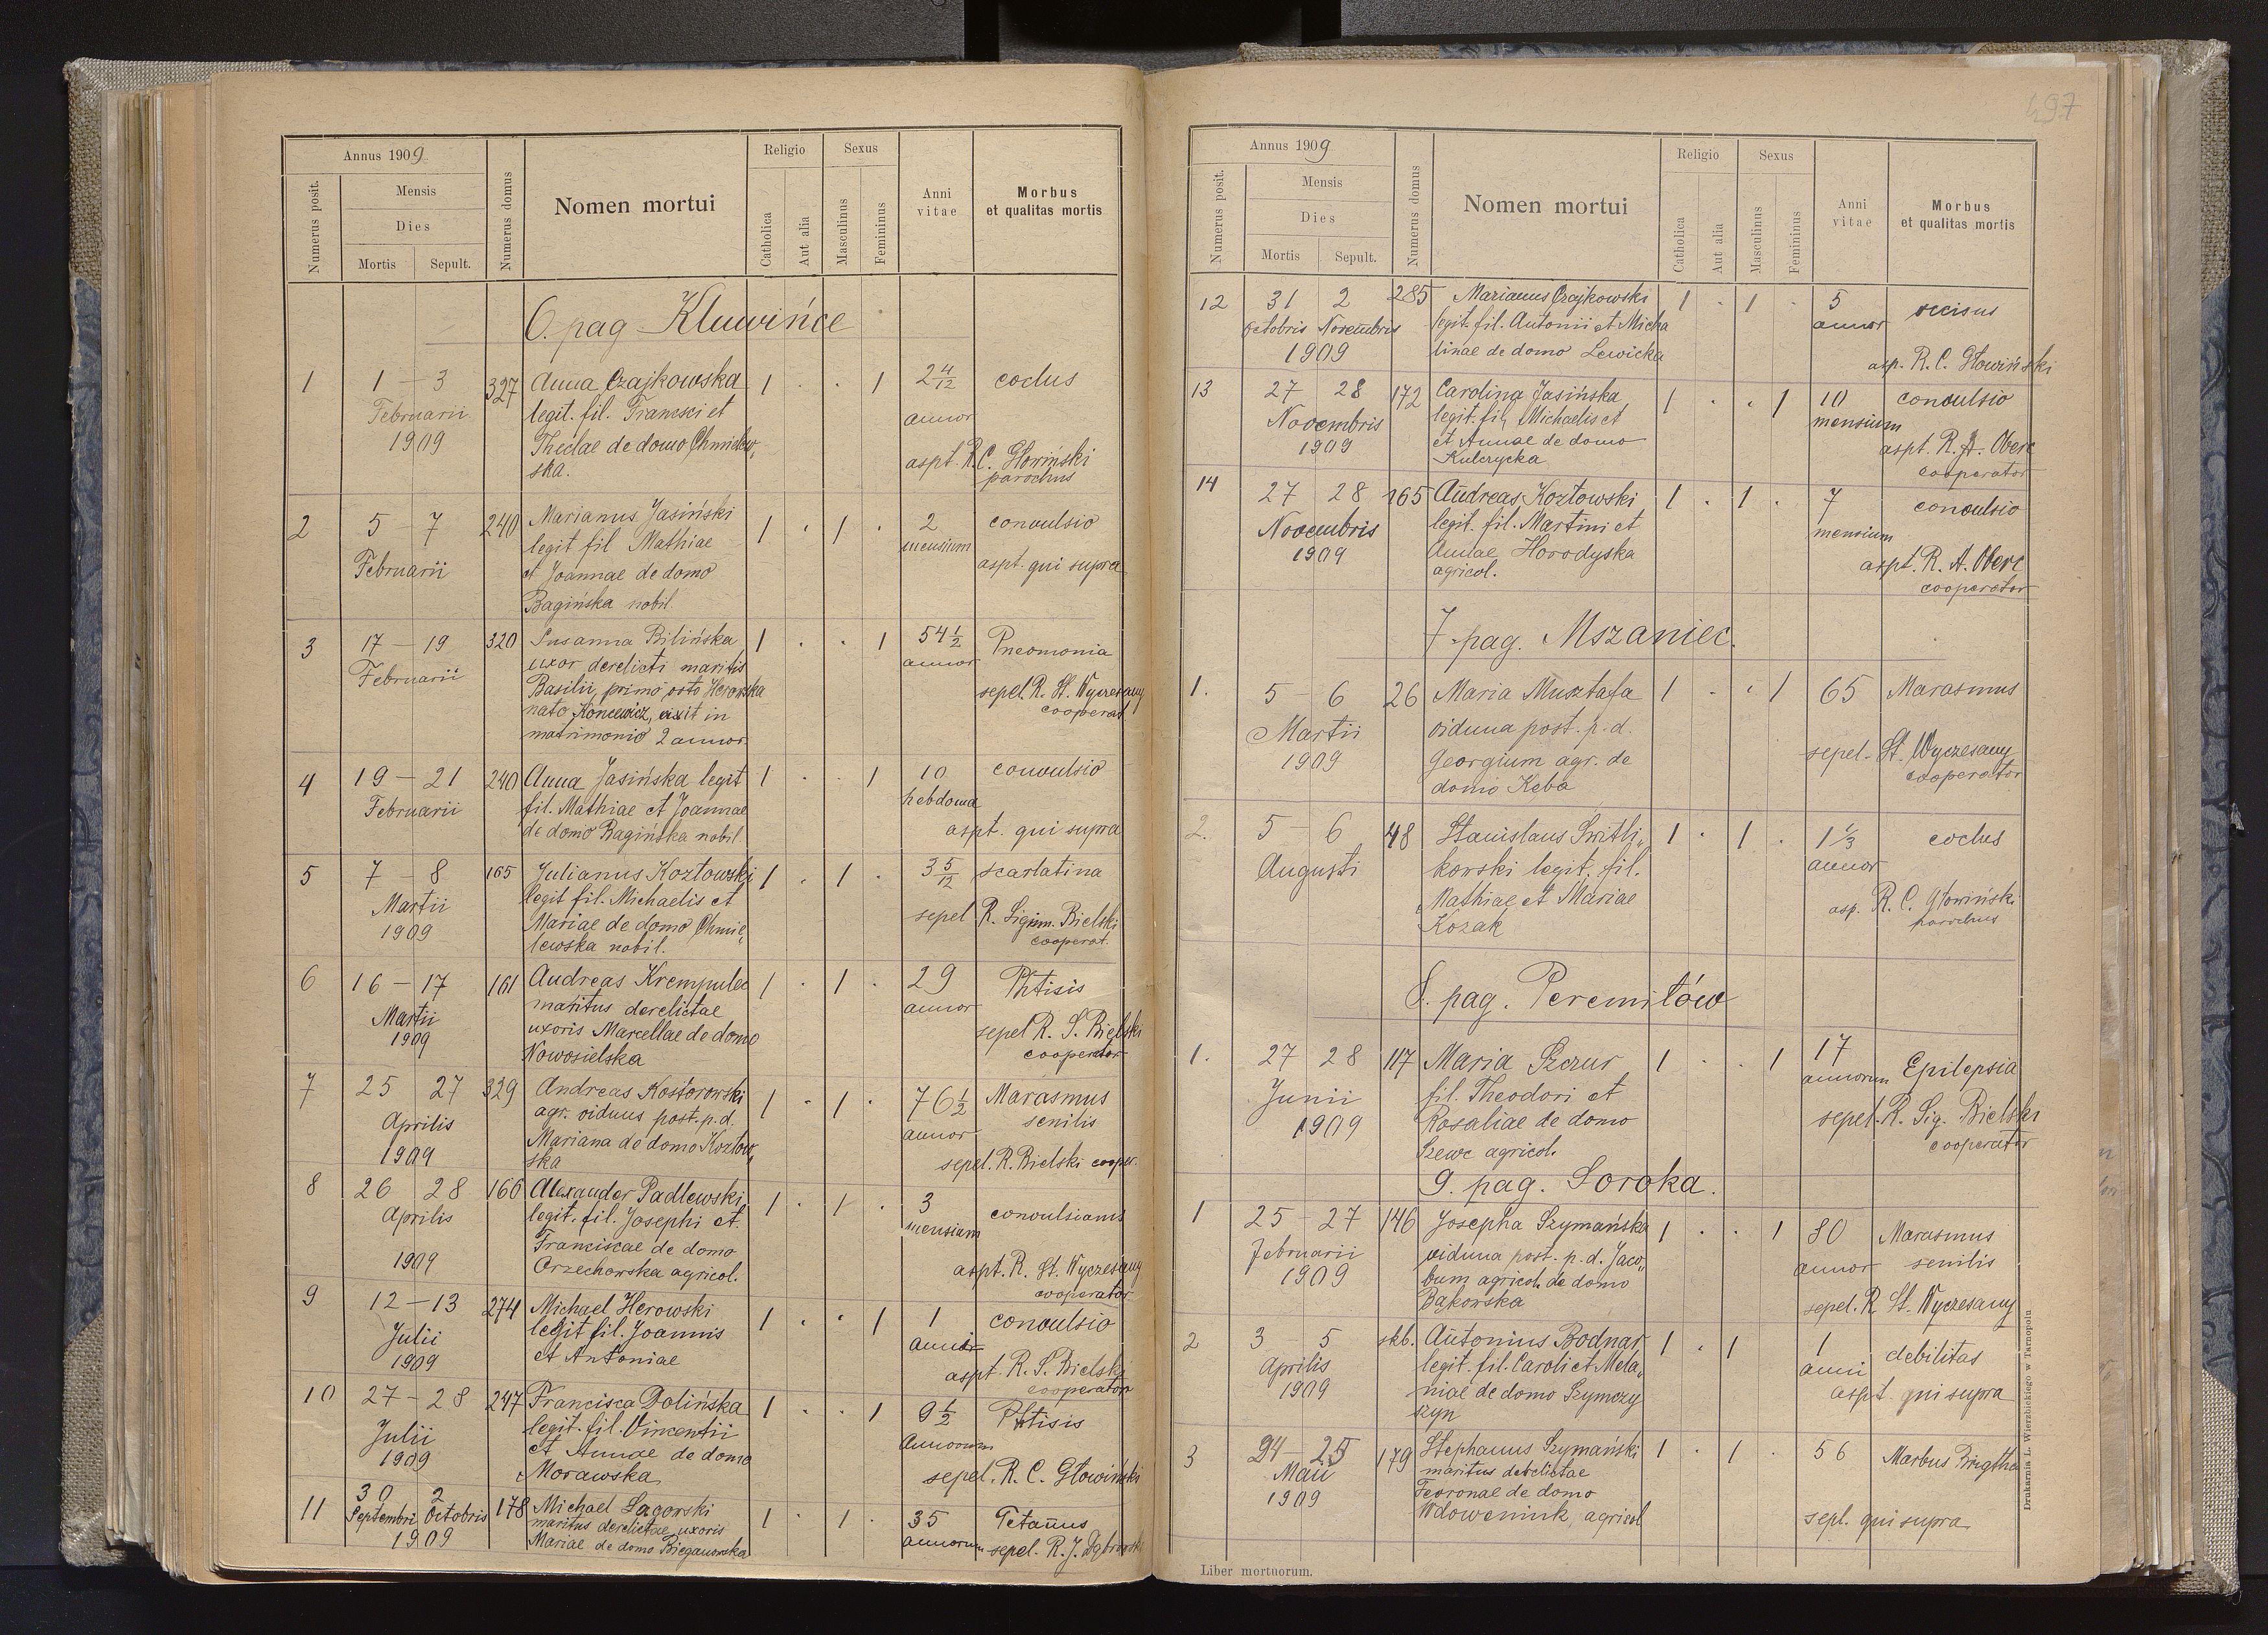 Annus 1909
Numerus posit.
Mensis
Dies
Mortis
Sepult.
Numerus domus
Nomen mortui
Religio
Catholica
Aut alia
Sexus
Masculinus
Femininus
Anni
vitae
Morbus
et qualitas mortis
6. pag Kluwińce
1 1 — 3 327 Anna Czajkowska 1 . . 1 2 4/12 coclus
Februarii legit. fil. Francisci et annor
1909 Theclae de domo Chmielew„
ska. aspt. R. C. Głowiński
parochus
2 5 — 7 240 Marianus Jasiński 1 . 1 . 2 convulsio
legit fil Mathiae mensium
Februarii et Joannae de domo aspt. qui supra
Bagińska nobil.
3 17 — 19 320 Susanna Bilińska 1 . . 1 54 1/2 Pneomonia
Februarii uxor derelicti maritis annor
Basilii, primo voto Herowska sepel. R. St. Wyczesany
nato Koncewicz, vixit in cooperat
matrimonio 2 annor.
4 19 — 21 240 Anna Jasińska legit 1 . . 1 10 convulsio
Februarii fil. Mathiae et Joannae hebdoma
de domo Bagińska nobil. aspt. qui supra
5 7 — 8 165 Julianus Kozłowski 1 . 1 . 3 5/12 scarlatina
Martii legit fil. Michaelis et
1909 Mariae de domo Chmie„ sepel R. Sigism. Bielski
lewska nobil. cooperat.
6 16 — 17 161 Andreas Krempulec 1 . 1 . 29 Phtisis
Martii maritus derelictae annor
1909 uxoris Marcellae de domo sepel R. S. Bielski
Nowosielska cooperator
7 25 27 329 Andreas Kostorowski 1 . 1 . 76 1/2 Marasmus
Aprilis agr. viduus post. p. d. annor senilis
1909 Mariana de domo Kozłow„
ska sepel. R. Bielski cooper.
8 26 28 166 Alexander Padlewski 1 . 1 . 3 convulsians
Aprilis legit. fil. Josephi et mensium
Franciscae de domo
1909 Orzechowska agricol. aspt. R. St. Wyczesany
cooperator
9 12 — 13 274 Michael Herowski 1 . . 1 1 convulsio
Julii legit fil. Joannis anni
1909 et Antoniae aspt. R. S. Bielski
cooperator
10 27 — 28 247 Francisca Dolińska 1 . . 1 9 1/2 Phtisis
Julii legit. fil. Vincentii Annorum
1909 et Annae de domo
Morawska sepel. R. C. Głowiński
11 30 2 178 Michael Sagorski 1 . 1 . 35 Tetanus
Septembri Octobris maritus derelictae uxoris annorum
1909 Mariae de domo Bieganowska sepel. R. J.
497
Annus 1909
Numerus posit.
Mensis
Dies
Mortis
Sepult.
Numerus domus
Nomen mortui
Religio
Catholica
Aut alia
Sexus
Masculinus
Femininus
Anni
vitae
Morbus
et qualitas mortis
12 31 2 285 Marianus Czajkowski 1 . 1 . 5 occisus
Octobris Novembris legit. fil. Antonii et Micha annor
1909 linae de domo Lewicka asp. R. C. Głowiński
13 27 28 172 Carolina Jasińska 1 . . 1 10 convulsio
Novembris legit. fil. Michaelis et mensium
1909 et Annae de domo aspt. R. A. Oberc
Kulczycka cooperator
14 27 28 165 Andreas Kozłowski 1 . 1 . 7 convulsio
Novembris legit. fil. Martini et mensium
1909 Annae Horodyska aspt. R. A. Oberc
agricol. cooperator
7. pag. Mszaniec.
1. 5 — 6 26 Maria Musztafa 1 . . 1 65 Marasmus
Martii vidua post. p. d.
1909 Georgium agr. de sepel. St. Wyczesany
domo Keba cooperator
2. 5 6 48 Stanislaus Switli„ 1 . 1 . 1 1/3 coclus
Augusti kowski legit. fil. annor
Mathiae et Mariae asp. R. C. Głowiński
Kozak parochus
8. pag. Peremiłów
1. 27 28 117 Maria Szczur 1 . . 1 17 Epilepsia
Junii fil. Theodori et annorum
1909 Rosaliae de domo sepel. R. Sig. Bielski
Szewc agricol. cooperator
9. pag. Soroka.
1 25 — 27 146 Josepha Szymańska 1 . . 1 80 Marasmus
Februarii vidua post. p. d. Jaco„ annor senilis
1909 bum agricol. de domo
Bąkowska sepel. R St. Wyczesany
2 3 5 skb. Antonius Bodnar 1 . 1 1 debilitas
Aprilis legit. fil. Caroli et Mela„ anni
1909 niae de domo Szymczy aspt. qui supra
szyn
3 24 — 25 179 Stephanus Szymański 1 . 1 . 56 Marbus Brigthe
Maii maritus derelictae
1909 Fevronae de domo
Wdoweniuk, agricol sepl. qui supra
Liber mortuorum.
Drukarnia L. Wierzbickiego w Tarnopolu